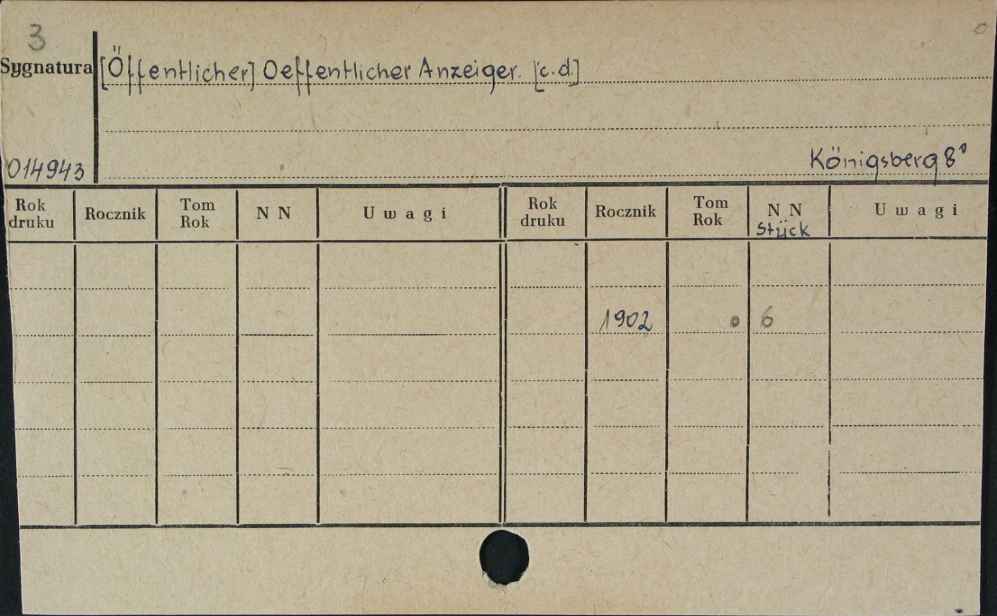 3
Sygnatura [Öffentlicher] Oeffentlicher Anzeiger. [c.d.]
014943 Königsberg 8°
Rok druku Rocznik Tom Rok N N Uwagi Rok druku Rocznik Tom Rok N N Stück Uwagi
1902 6